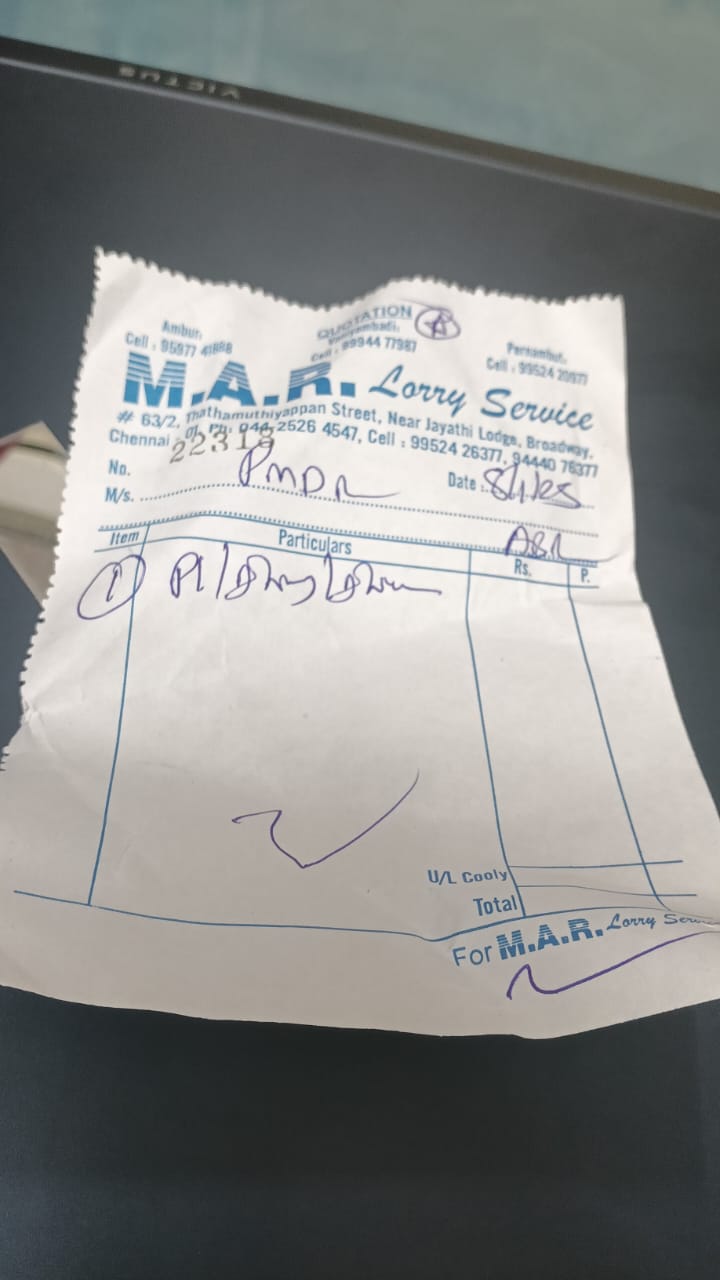 VICTUS
QUOTATION
Ambur, Vaniyambadi, Pernambut,
Cell : 95977 41888 Cell : 99944 77987 Cell : 99524 20977
M.A.R. Lorry Service
# 63/2, Thathamuthiyappan Street, Near Jayathi Lodge, Broadway,
Chennai - 01. Ph: 044-2526 4547, Cell : 99524 26377, 94440 76377
No. 22318 Date :
M/s.
Item Particulars Rs. P.
1
U/L Cooly
Total
For M.A.R. Lorry Service